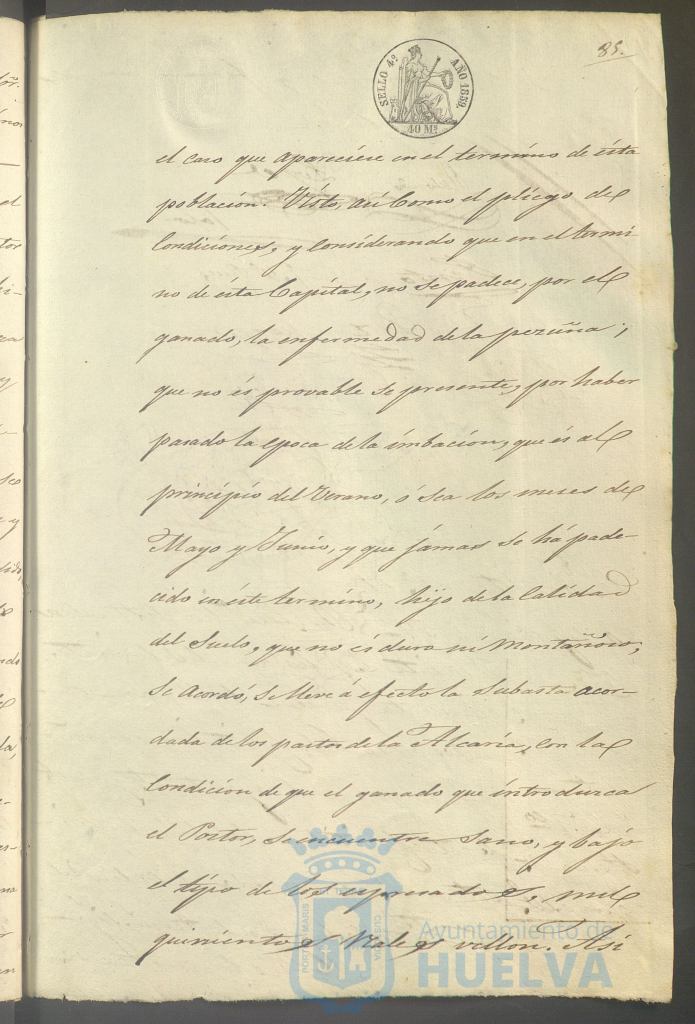 85.
SELLO 4º AÑO 1859.
40 Ms
el caso que apareciese en el termino de ésta
población. Visto, así como el pliego de
Condiciones, y considerando que en el termi-
no de ésta Capital, no se padece, por el
ganado, la enfermedad de la pezuña;
que no és provable se presente, por haber
pasado la epoca de la imbación, que és al
principio del Verano, ó sea los meses de
Mayo y Junio, y que jámas se há pade-
cido en éste termino, hijo de la Calidad
del Suelo, que no és duro ni Montañoso,
Se Acordó, Se lleve á efecto la Subasta acor-
dada de los pastos de la Alcaria, con la
Condicion de que el ganado que introduzca
el Postor, se encuentre Sano, y bajo
el tipo de los espresados, mil
quinientos Reales vellon. Asi
PORTUS MARIS
CUSTODIA
Ayuntamiento de
HUELVA